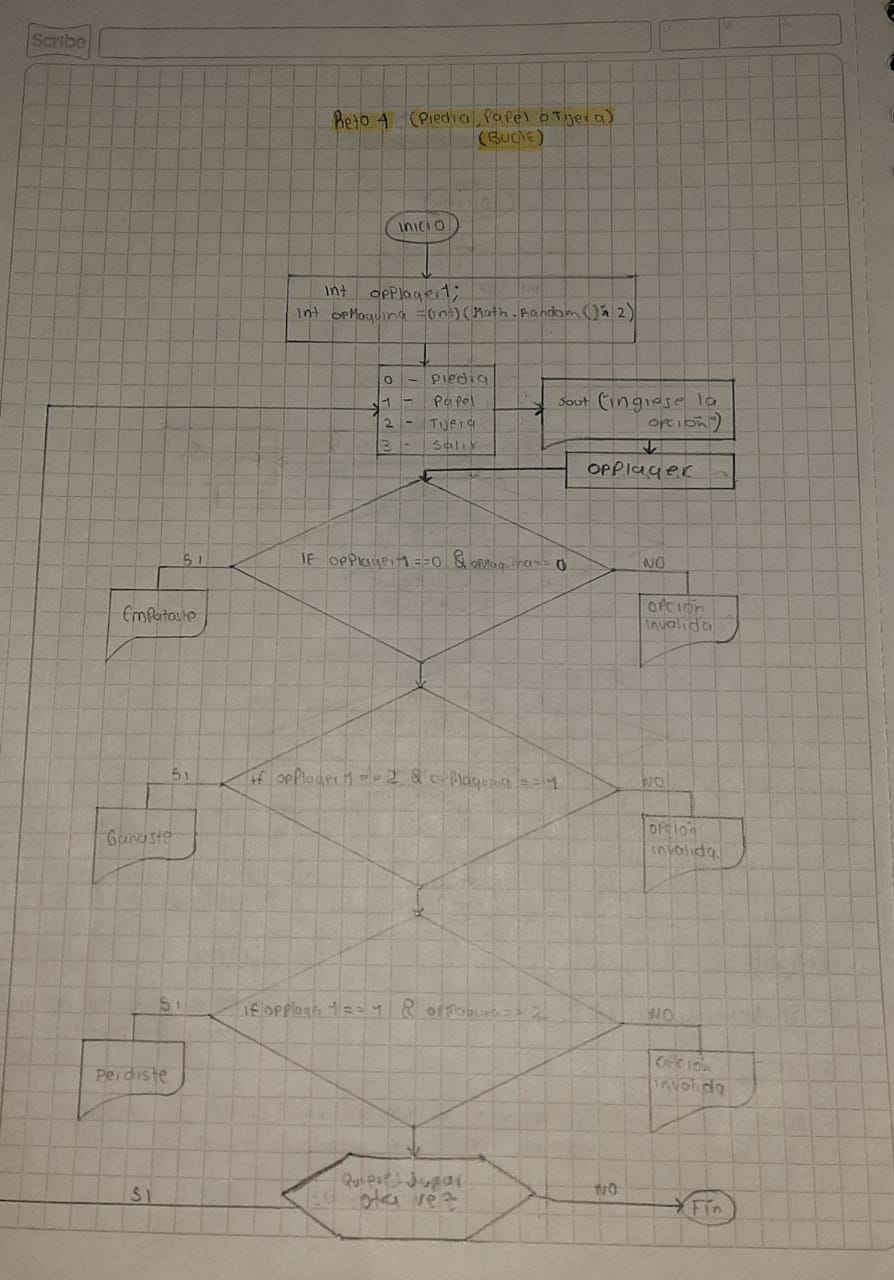 Scribe
D M A
Reto 4 (Piedra, Papel o Tijera)
(Bucle)
inicio
Int opPlayer1;
Int opMaquina =(int)(Math.Random()* 2)
0 - Piedra
1 - Papel
2 - Tijera
3 - Salir
sout ("ingrese la
opción")
opPlayer
If opPlayer1 ==0 & opMaquina==0
SI
NO
Empataste
opción
invalida
if opPlayer1 == 2 & opMaquina == 1
SI
NO
Ganaste
opción
invalida
if opPlaye1 == 1 & opMaquina == 2
SI
NO
Perdiste
opción
invalida
Quiere Jugar
otra vez
SI
NO
Fin